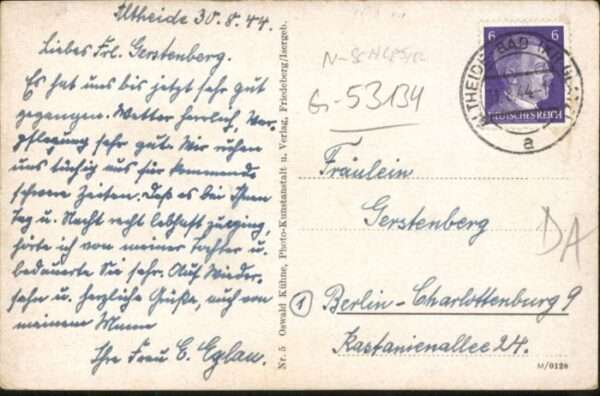 Altheide 30.8.44.
Liebes Frl. Gerstenberg.
Es hat uns bis jetzt sehr gut
gegangen. Wetter herrlich, Ver-
pflegung sehr gut. Wir ruhen
uns tüchtig aus für kommende
schwere Zeiten. Daß es bei Ihnen
Tag u. Nacht recht lebhaft zuging,
hörte ich von meiner Tochter u.
bedauerte Sie sehr. Auf Wieder-
sehn u. herzliche Grüße, auch von
meinem Mann
Ihre Frau E. Eglau.
Nr. 5 Oswald Kühne, Photo-Kunstanstalt u. Verlag, Friedeberg/Isergeb.
N-SCHLESIEN
G-53134
6 6
DEUTSCHES REICH
ALTHEIDE BAD
44
a
Fräulein
Gerstenberg
DA
1 Berlin-Charlottenburg 9
Kastanienallee 24.
M/0126